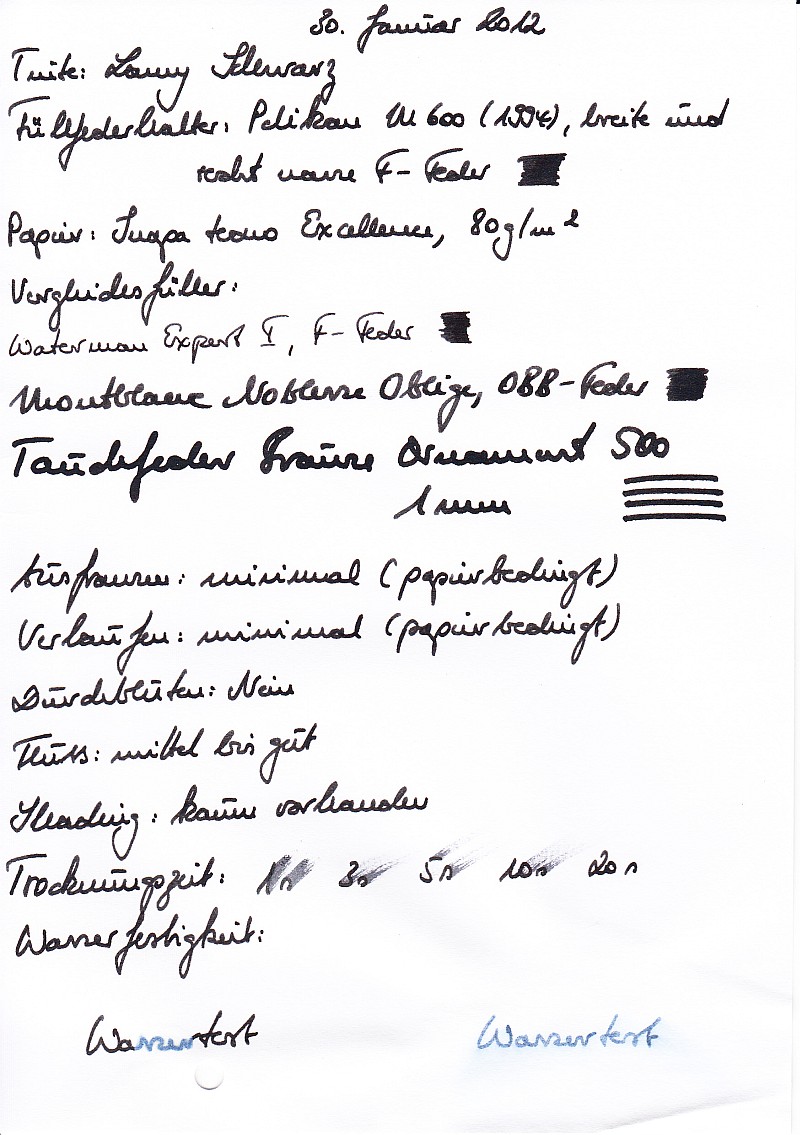 30. Januar 2012
Tinte: Lamy Schwarz
Füllfederhalter: Pelikan M 600 (1994), breite und
recht nasse F-Feder
Papier: Inapa tecno Excellence, 80g/m²
Vergleichsfüller:
Waterman Expert I, F-Feder
Montblanc Noblesse Oblige, OBB-Feder
Tauchfeder Brause Ornament 500
1 mm
Ausfransen: minimal (papierbedingt)
Verlaufen: minimal (papierbedingt)
Durchbluten: Nein
Fluss: mittel bis gut
Shading: kaum vorhanden
Trocknungszeit: 1s 3s 5s 10s 20s
Wasserfestigkeit:
Wassertest Wassertest